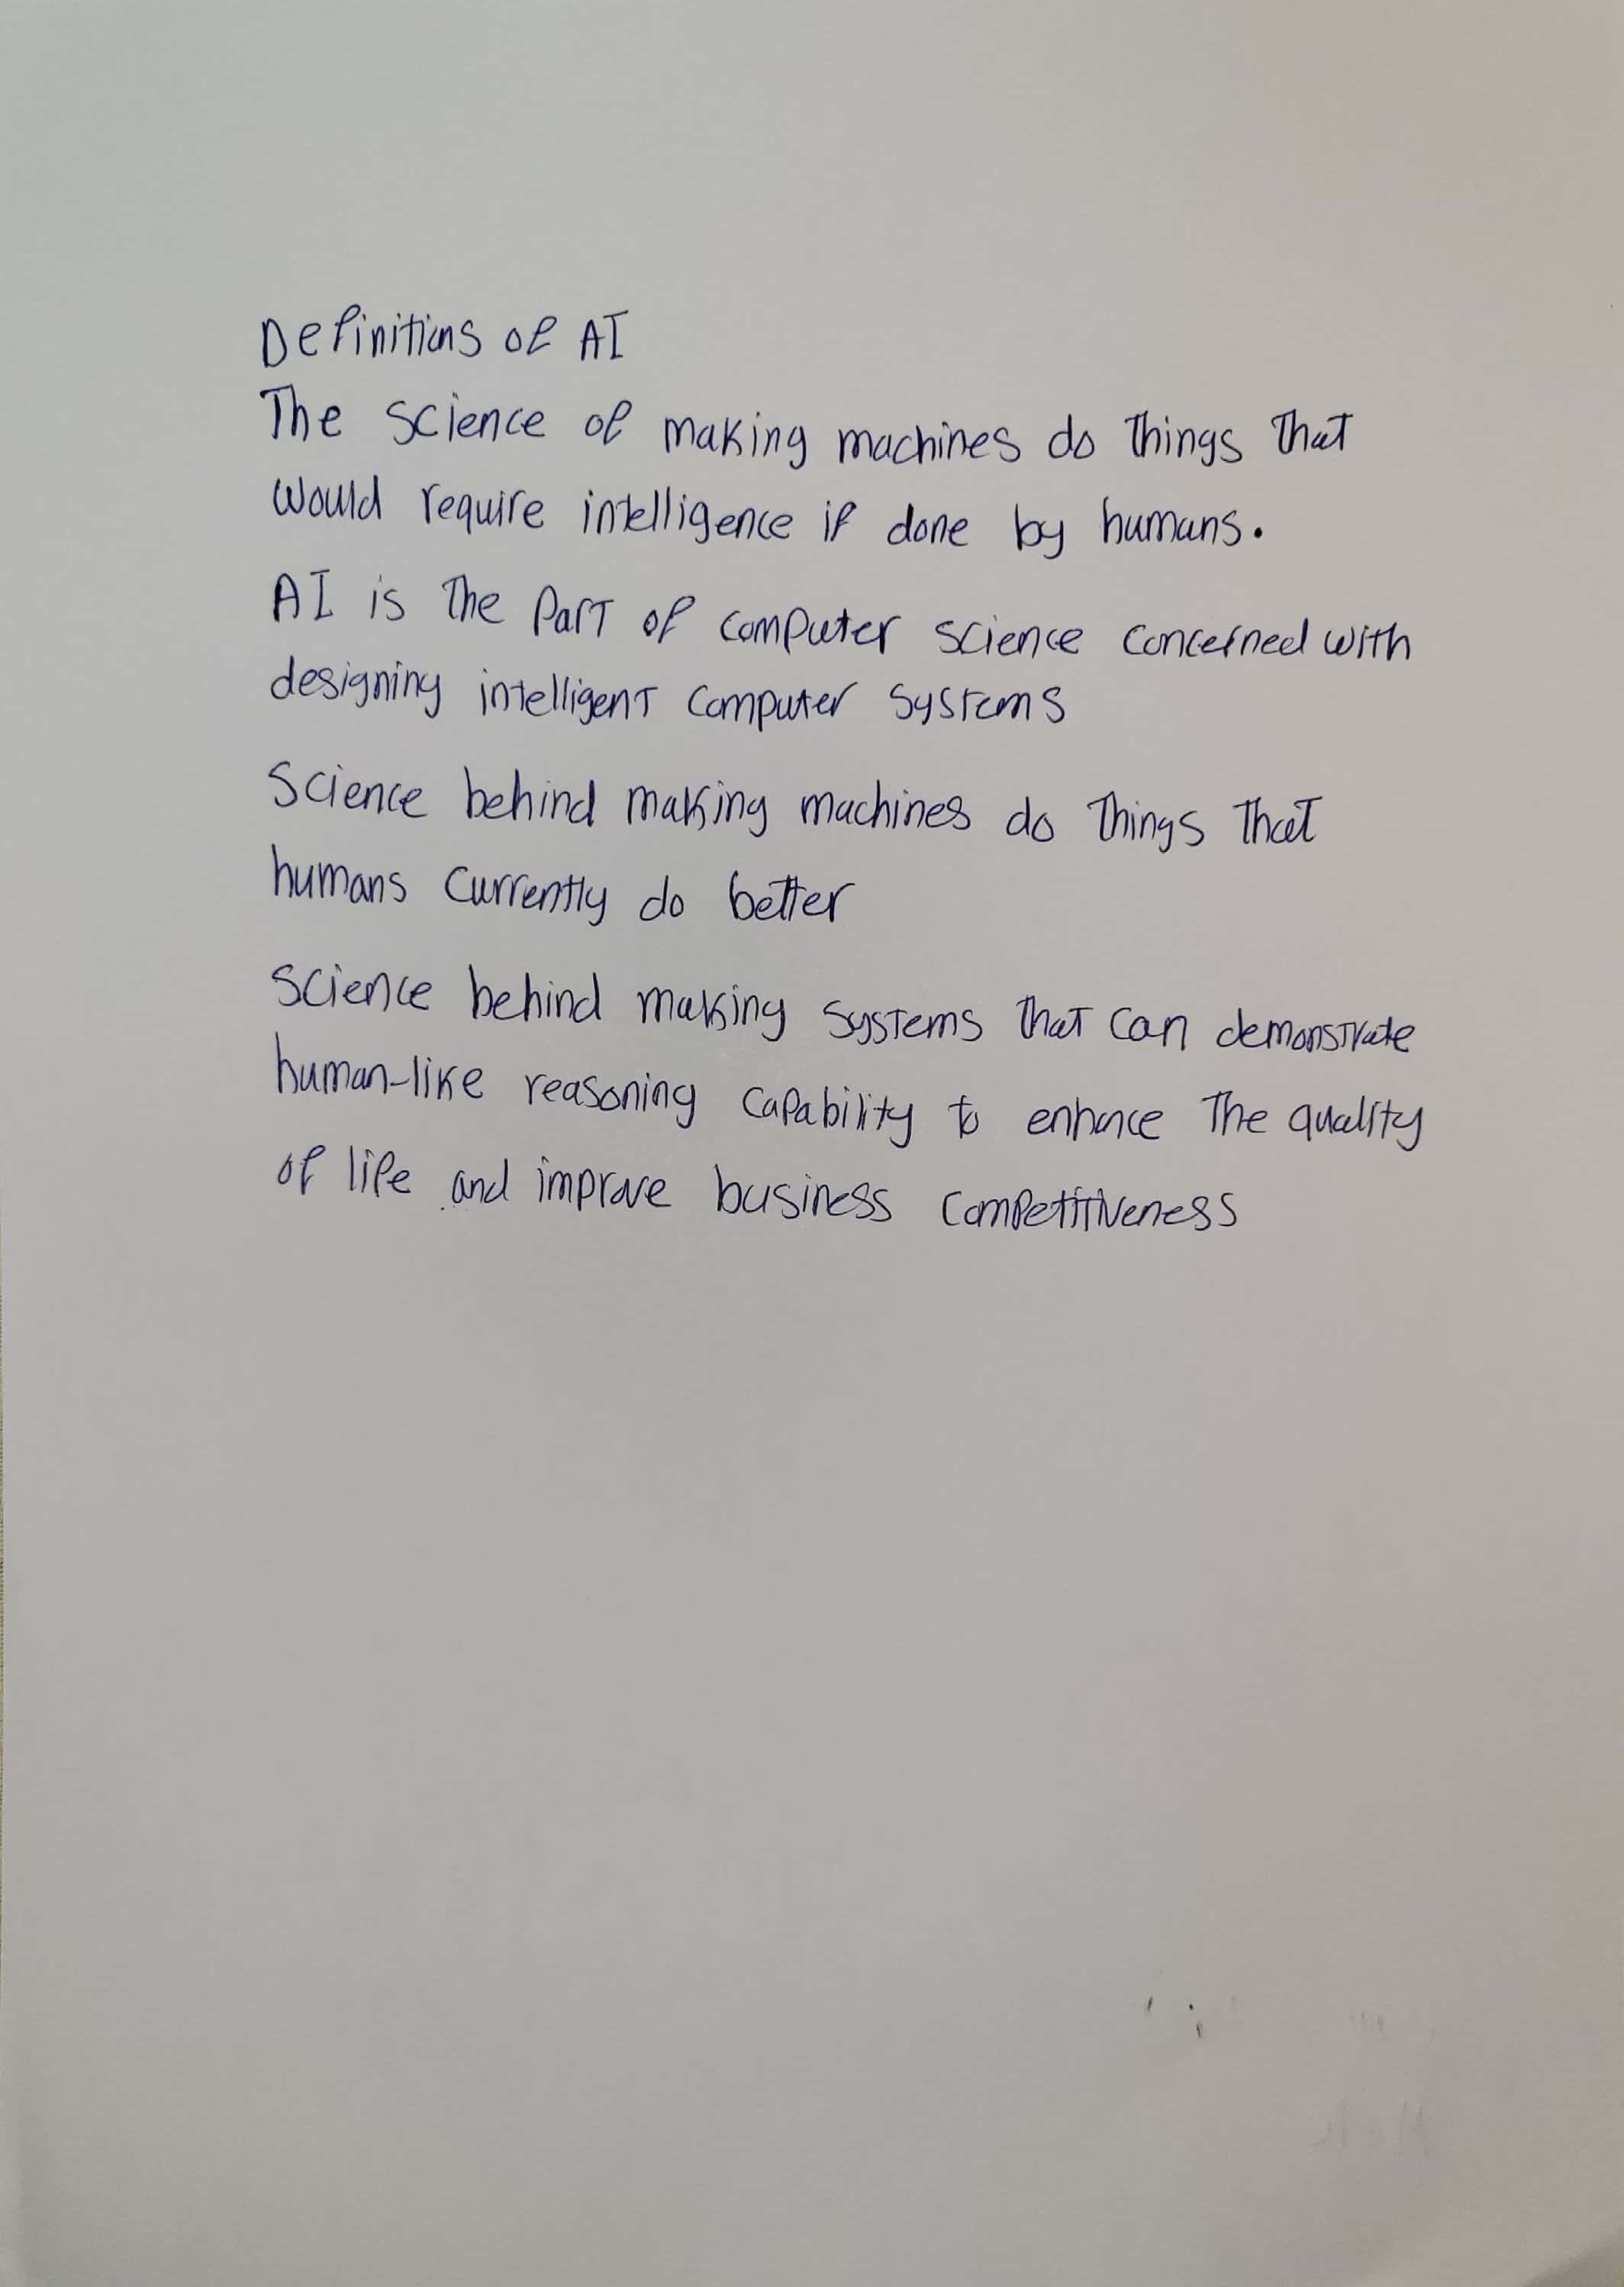 Definitions of AI
The science of making machines do things that
would require intelligence if done by humans.
AI is the Part of computer science concerned with
designing intelligent computer systems
Science behind making machines do things that
humans currently do better
Science behind making systems that can demonstrate
human-like reasoning capability to enhance the quality
of life and improve business competitiveness